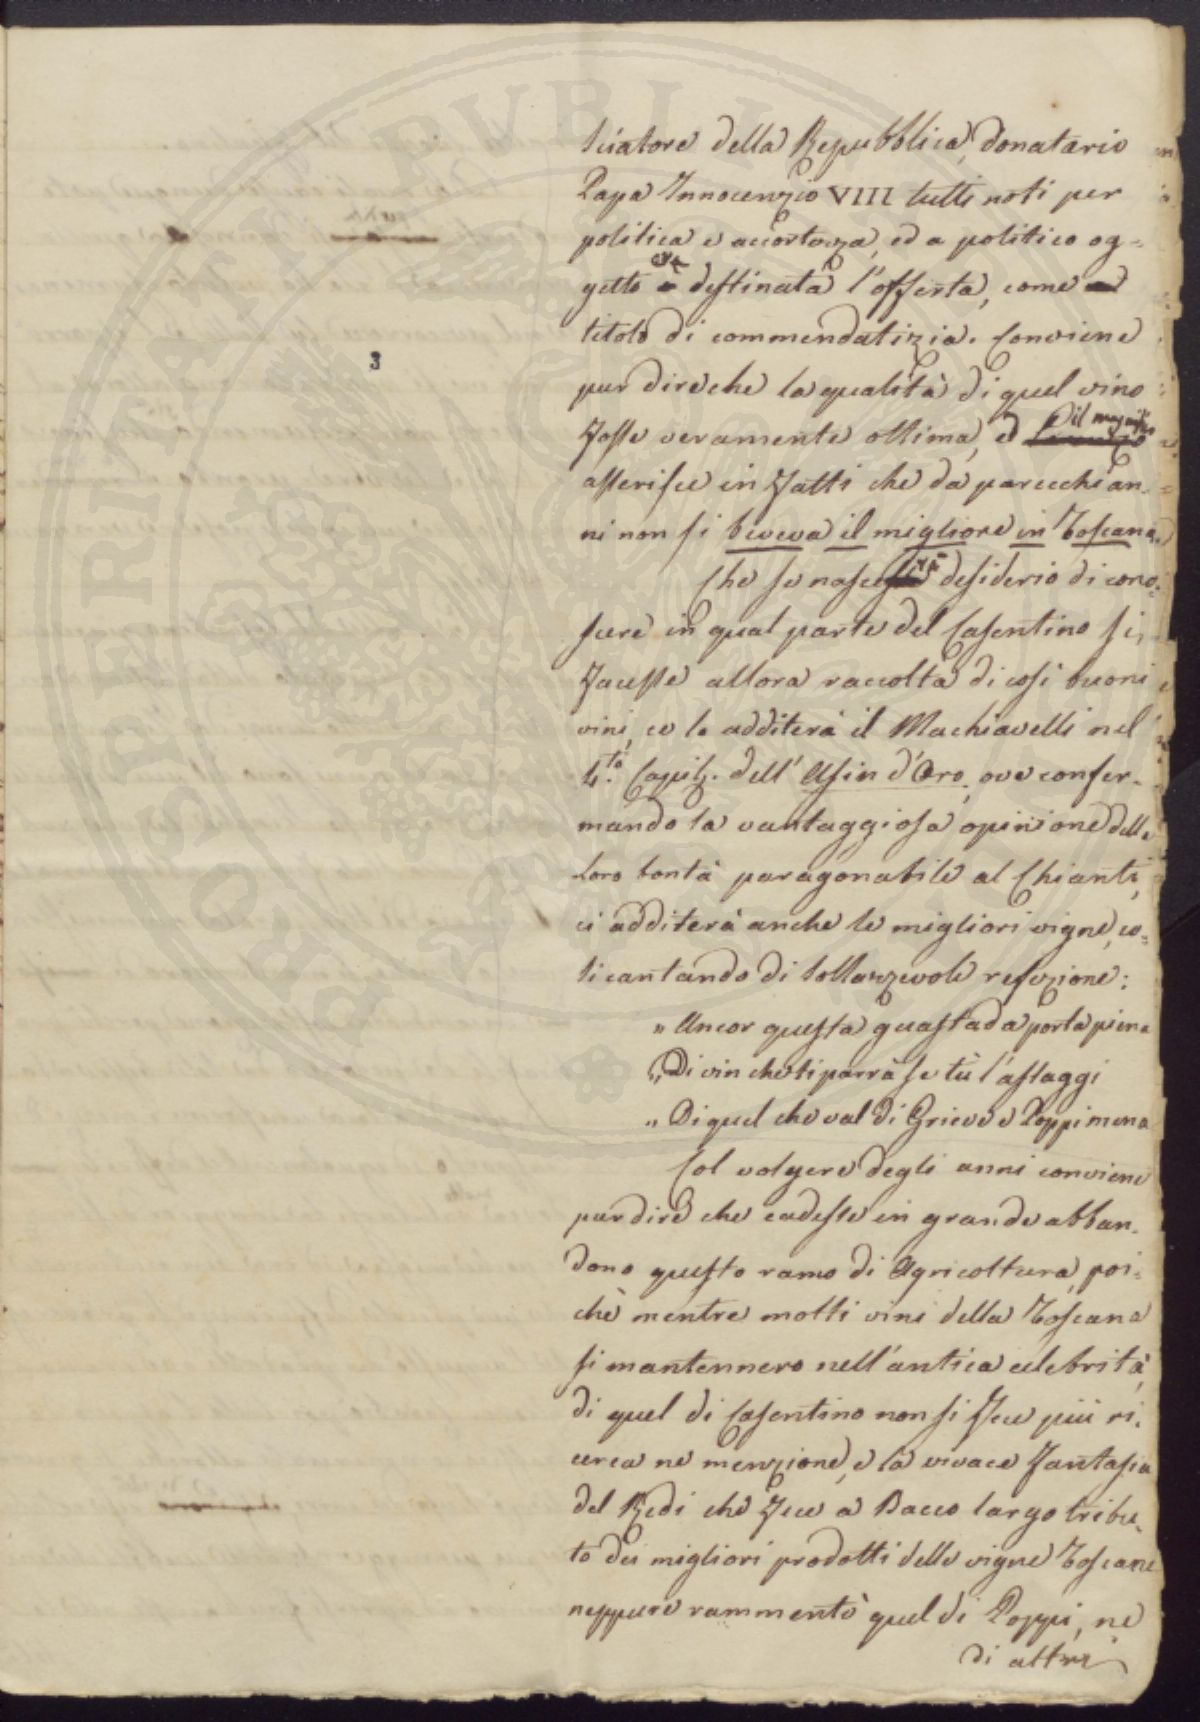 sciatore della Repubblica, donatario
Papa Innocenzio VIII tutti noti per
politica e accortezza, ed a politico og=
getto era destinata l'offerta, come
titolo di commendatizia. Conviene
3
pur dire che la qualità di quel vino
fosse veramente ottima, ed il
asserisce in fatti che da parecchi an-
ni non si beveva il migliore in Toscana.
Che se nascerà desiderio di cono=
scere in qual parte del Casentino si
facesse allora raccolta di così buoni
vini, ce lo additerà il Machiavelli nel
4.to Capit. dell'Asin d'Oro, ove confer-
mando la vantaggiosa opinione della
loro bontà paragonabile al Chianti,
ci additerà anche le migliori vigne, co=
sì cantando di sollazzevole refezione:
„ Ancor questa guastada porta piena
„ Di vin che ti parrà se tù l'assaggi
„ Di quel che val di Grieve e Poppi mena
Col volgere degli anni conviene
pur dire che cadesse in grande abban-
dono questo ramo di Agricoltura, poi=
chè mentre molti vini della Toscana
si mantennero nell'antica celebrità,
di quel di Casentino non si fece più ri-
cerca ne menzione, e la vivace fantasia
del Redi che fece a Bacco largo tribu-
to dei migliori prodotti delle vigne Toscane
neppure rammentò quel di Poppi, ne
di altri
PROSPERITATI PVBLI